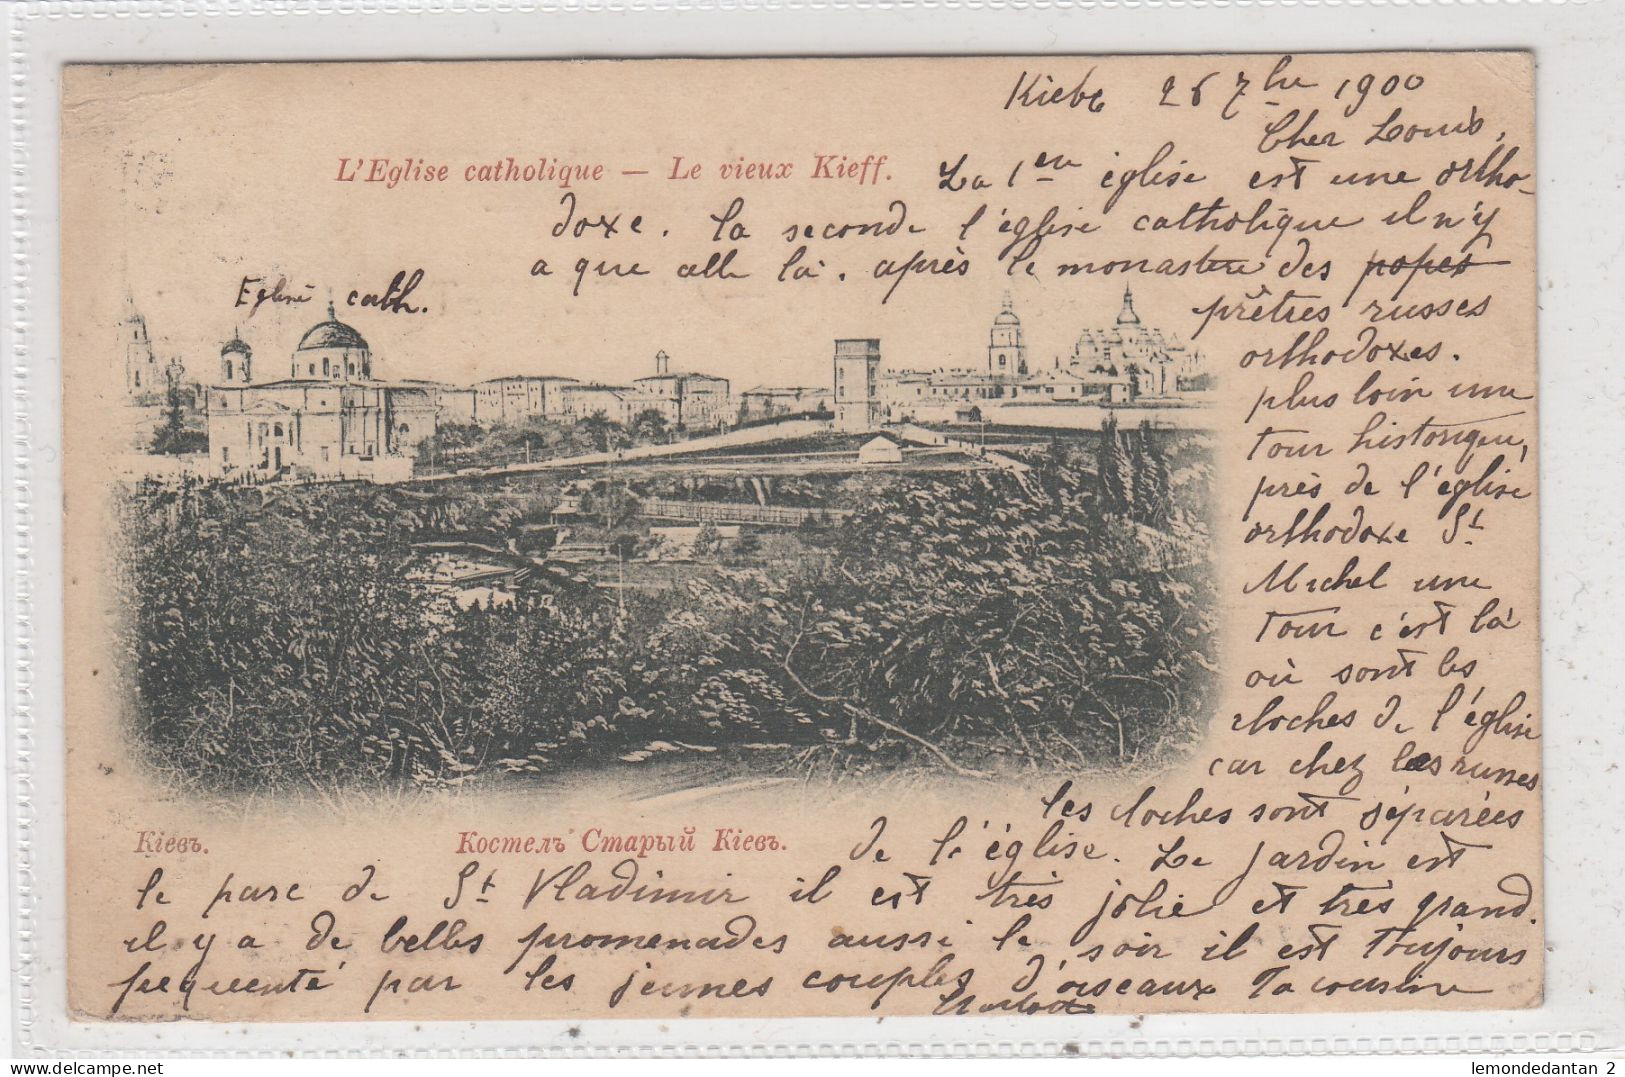 Kiebe 26 7bre 1900
Cher Louis,
L'Eglise catholique — Le vieux Kieff.
La 1ere église est une ortho-
doxe. la seconde l'église catholique il n'y
a que elle là. après le monastère des popes
prêtres russes
Eglise cath.
orthodoxes.
plus loin une
tour historique,
près de l'église
orthodoxe St
Michel une
tour c'est là
où sont les
cloches de l'église
car chez les russes
les cloches sont séparées
Кіевъ. Костелъ Старый Кіевъ.
de l'église. Le jardin est
le parc de St Vladimir il est très jolie et très grand.
il y a de belles promenades aussi le soir il est toujours
frequenté par les jeunes couples d'oiseaux Ta cousine
lemondedantan 2